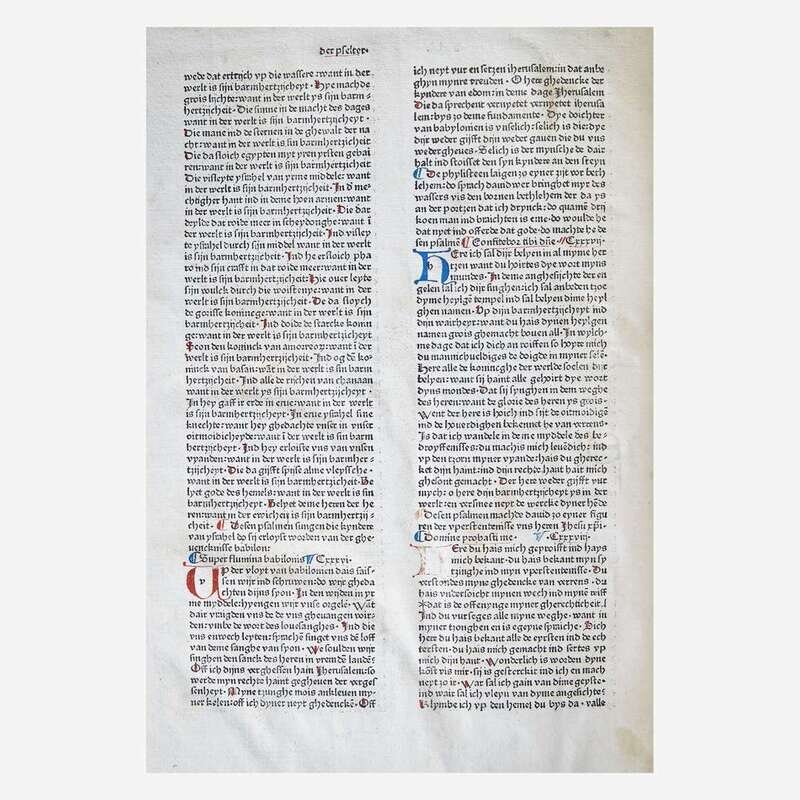 der pselter·
wede dat ertrijch vp die wassere:want in der
werlt is sijn barmhertzijcheyt · Hye mach de
grois lichte:want in der werlt ys sijn barm-
hertzijcheit · Die sinne in de macht des dages
want in der werlt is sijn barmhertzijcheyt ·
Die mane ind de sternen in de ghewalt der na
cht:want in der werlt is sijn barmhertzijcheit
Die da sloich egypten myt yren yrsten gebai
ren:want in der werlt is sijn barmhertzijcheit
Die visleyte ystahel van yrme middele:want
in der werlt is sijn barmhertzijcheit · In d' me-
chtigher hant ind in deme hoen armen:want
in der werlt is sijn barmhertzijcheit · Die dar
deylde dat roide meer in scheydonghe:want ī
der werlt is sijn barmhertzijcheit · Ind visley
te ystahel durch sijn middel want in der werlt
is sijn barmhertzijcheit · Ind he ersloich pha
ro ind sijn crafft in dat roide meer:want in der
werlt is sijn barmhertzijcheit · Hie ouer leyte
sijn wulck durch die woistenye:want in der
werlt is sijn barmhertzijcheit · De da sloych
de groisse konincge:want in der werlt is sijn
barmhertzijcheit · Ind doide de starcke konin
ge:want in der werlt is sijn barmhertzijcheit
Seon den koninck van amorreor:want ī der
werlt is sijn barmhertzijcheit · Ind og dē ko-
ninck van basan:wāt in der werlt is sijn barm
hertzijcheit · Ind alle de rijchen van chanaan
want in der werlt ys sijn barmhertzijcheit ·
In hey gaff ir erde in erue:want in der werlt
is sijn barmhertzijcheyt · In erue ystahel sine
knechte:want hey ghedachte vnser in vnser
oitmoidicheyde:want ī der werlt is sin barm
hertzijcheit · Ind hey erloiste vns van vnsen
vyanden:want in der werlt is sijn barmher-
tzijcheit · Die da gijfft spijse alme vleyssche·
want in der werlt is sijn barmhertzijcheit · Be
lyet gode des hemels:want in der werlt is sijn
barmhertzijcheyt · Belyet deme heren der he
ren:want in der ewicheit is sijn barmhertzij-
cheit · Desen psalmen singen die kyndere
van ystahel do sij erloyst worden van der ghe
uencknisse babilon:
Super flumina babilonis Cxxxvi·
Up der vloyt van babilonien dais sais-
sen wijr ind schruwen:do wijr gheda
achten dijns syon · In den wijden in yr
me myddele:hyengen wijr vnse orgele · Wāt
dair vragden vns de de vns gheuangen woir-
den:vmbe de wort des louesanghes · Ind die
vns enwech leyten:sprachē singet vns dē loff
van deme sanghe van syon · We soulden wijr
singhen den sanck des heren in vremdē landē·
Off ich dijns verghessen hain Iherusalem:so
werde myn rechte haint gegheuen der verges
senheyt · Myne tzunghe mois ankleuen my-
ner kelen:off ich dyner neyt ghedenckē · Off
ich neyt vur en setzen iherusalem:in dat anbe
ghyn mynre vreuden · O here ghedencke der
kyndere van edom:in deme dage Iherusalem
Die da sprechent vernyetet vernyetet iherusa
lem:bys zo deme fundamente · Dye doichter
van babylonien is vnselich:selich is die:dye
dijr weder gijfft dijn weder gauen die du vns
wedergheues · Selich is der mynsche de dair
halt ind stoisset den syn kyndere an den steyn
De phylisteen laigen zo eyner zijt vor beth
lehem:do sprach dauid wer bringhet myr des
wassers vis den bornen bethlehem der da ys
an der portzen dat ich dryncke:do quamē drij
koen man ind braichten is eme·do woulde he
dat nyet ind offerde dat gode·do machte he de
sen psalmē Confitebor tibi dn̄e · Cxxxvij·
HEre ich sal dijr belyen in al myme her
tzen want du hoirtes dye wort myns
mundes · In deme angesichte der en
gelen sal ich dijr singhen:ich sal anbeden tzoe
dyme heylgē tempel ind sal belyen dime heyl
ghen namen · Vp dijn barmhertzijcheit ind
dijn wairheyt:want du hais dynen heylgen
namen grois ghemacht bouen all · In wylch-
me dage dat ich dich an roiffen so hoyre mich
du mannichueldiges de doigde in myner selē·
Here alle de koningche der werlde soelen dir
belyen:want sij haint alle gehoirt dye wort
dyns mondes · Dat sij synghen in dem weghe
des heren:want de glorie des heren ys grois·
Want der here is hoich ind sijt de oitmoidigē
ind de houerdighen bekennet he van verrens·
Is dat ich wandele in deme myddele des be-
droffenisses:du machis mich leuēdich: ind
vp den tzorn myner vyande:hais du gherec-
ket dijn haint:ind dijn rechte hant hait mich
ghesont gemacht · Der here weder gijfft vur
mych: o here dijn barmhertzicheyt ys in der
werlt:en versmee neyt de wercke dyner hēde
Desen psalmen machde dauid zo eyner figu
ren der vperstentenisse vns heren Jhesu xp̄i·
Domine probasti me · Cxxxviij·
HEre du hais mich geproifft ind hays
mich bekant·du hais bekant myn sy
tzinghe ind myn vperstentenisse · Du
verstondes myne ghedencke van verrens · du
hais vndersoicht mynen wech ind myn triff
dat is de offenynge myner gherechticheit·I
Ind du vursieges alle myne weghe·want in
myner tzonghen en is egeyne sprache · Sich
here du hais bekant alle de eyrsten ind de ech
tersten·du hais mich gemacht ind settes vp
mich dijn hant · Wonderlich is worden dyne
kōst vis mir·sij is gesterckt ind ich en mach
neyt zo ir · War sal ich gain van dime geyste·
ind wair sal ich vleyn van dyme angesichte:
Klymbe ich vp den hemel du bys da · valle